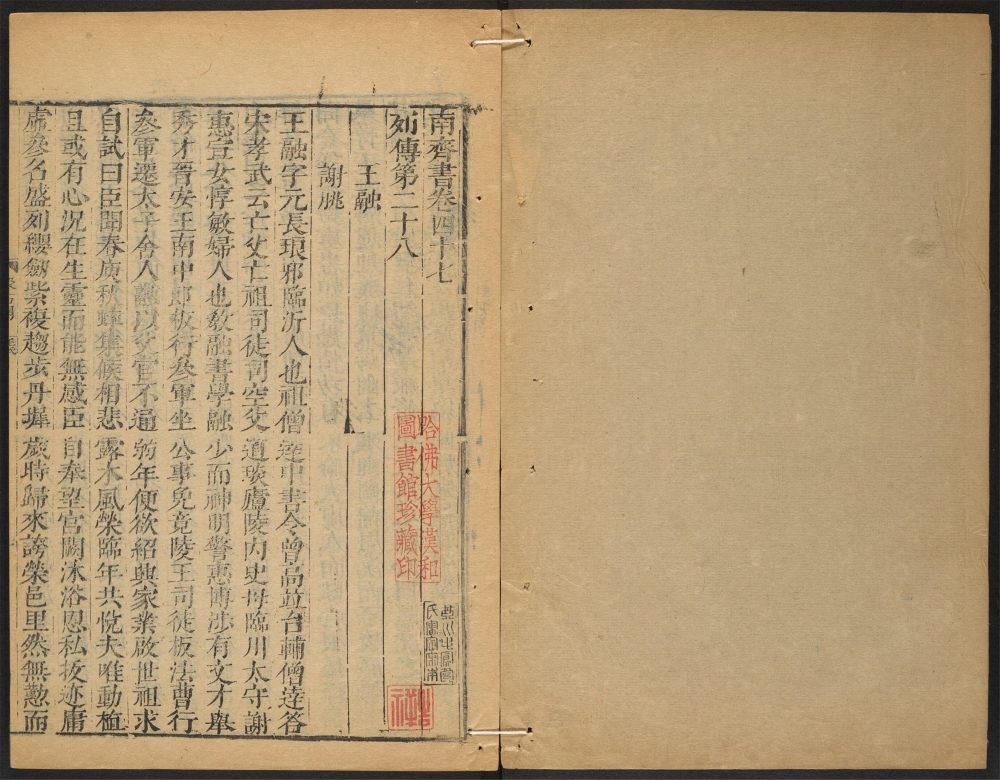 南齊書卷四十七
列傳第二十八
王融
謝朓
王融字元長琅邪臨沂人也祖僧達中書令曾高並台輔僧達荅
宋孝武云亡父亡祖司徒司空父道琰廬陵內史母臨川太守謝
惠宣女惇敏婦人也敎融書學融少而神明警惠博涉有文才舉
秀才晉安王南中郎板行參軍坐公事免竟陵王司徒板法曹行
參軍遷太子舍人融以父官不通弱年便欲紹興家業啟世祖求
自試曰臣聞春庚秋蟀集候相悲露木風榮臨年共悅夫唯動植
且或有心況在生靈而能無感臣自奉望宮闕沐浴恩私拔迹庸
虛參名盛列纓劒紫複趨步丹墀歲時歸來誇榮邑里然無勲而
哈佛大學漢和
圖書館珍藏印